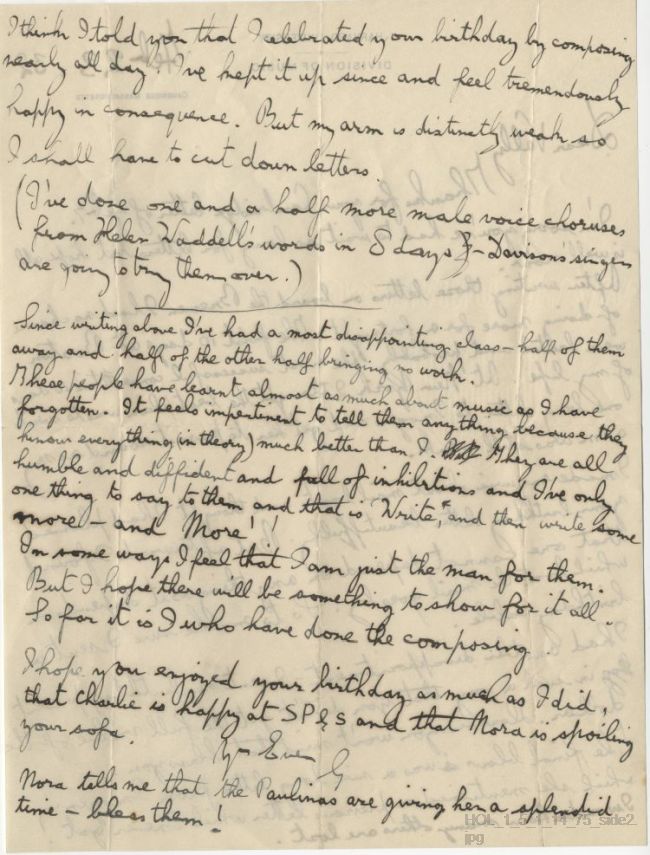 I think I told you that I celebrated your birthday by composing
nearly all day. I've kept it up since and feel tremendously
happy in consequence. But my arm is distinctly weak so
I shall have to cut down letters.
(I've done one and a half more male voice choruses
from Helen Waddell's words in 8 days - Davison's singers
are going to try them over.)
Since writing above I've had a most disappointing class - half of them
away and half of the other half bringing no work.
These people have learnt almost as much about music as I have
forgotten. It feels impertinent to tell them anything because they
know everything (in theory) much better than I. They are all
humble and diffident and full of inhibitions and I've only
one thing to say to them and that is 'Write', and then write some
more - and More!!
In some ways I feel that I am just the man for them.
But I hope there will be something to show for it all.
So far it is I who have done the composing.
I hope you enjoyed your birthday as much as I did,
that Charlie is happy at SP&S and that Nora is spoiling
your sofa.
Yrs Ever G
Nora tells me that the Paulinas are giving her a splendid
time - bless them!
HOL_1_5_4_14_75_side2.
jpg